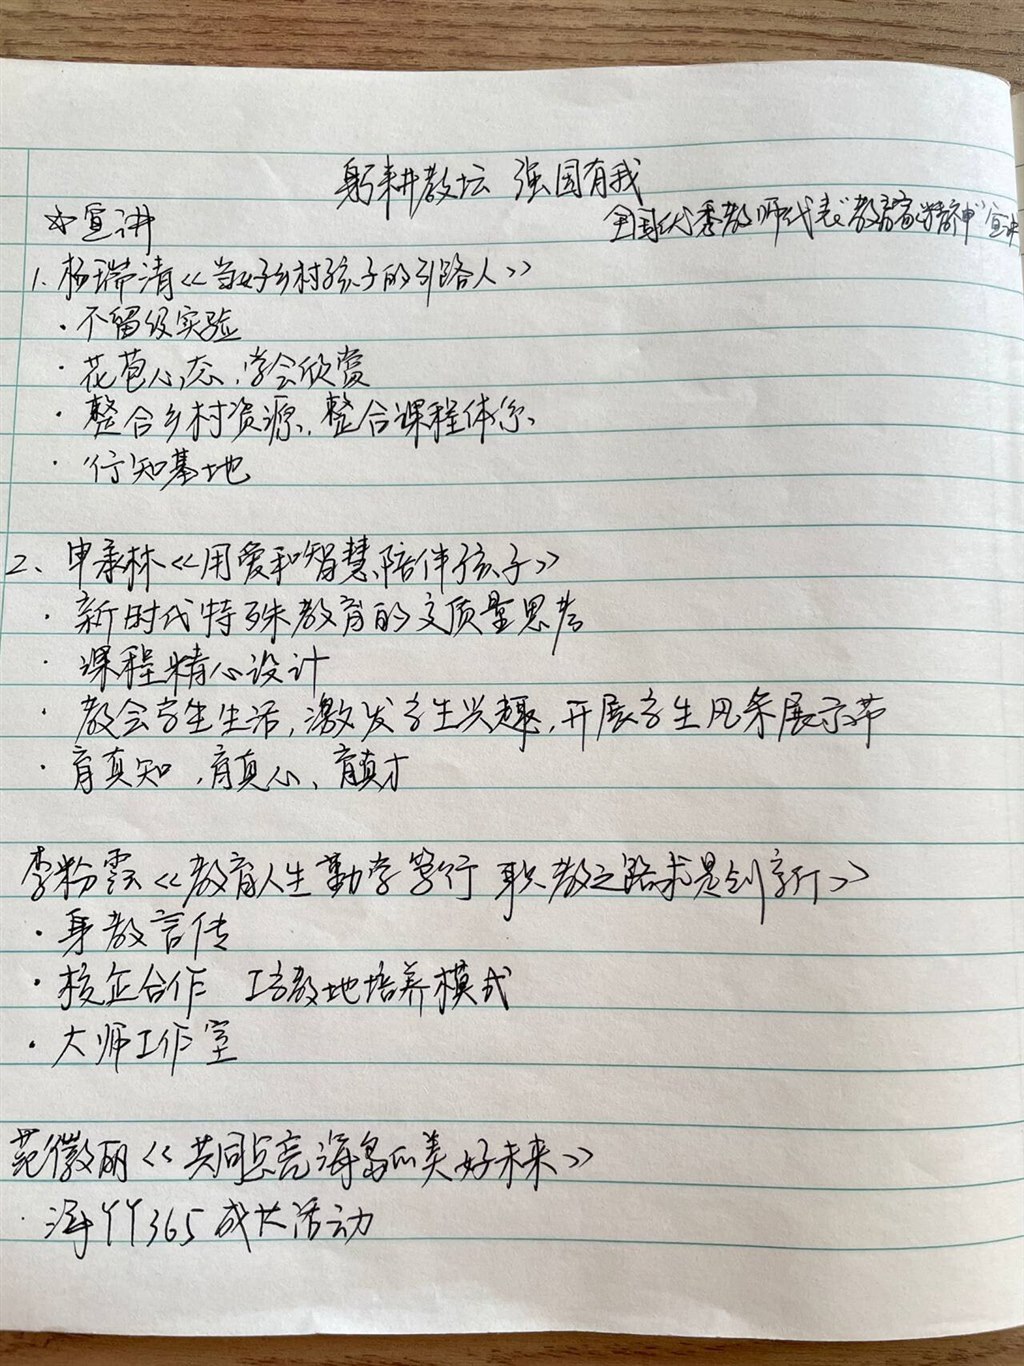 躬耕教坛 强国有我
☆宣讲
全国优秀教师代表"教育家精神"宣讲
1. 杨瑞清《当好乡村孩子的引路人》
· 不留级实验
· 花苞心态,学会欣赏
· 整合乡村资源,整合课程体系
· 行知基地
2、申承林《用爱和智慧陪伴孩子》
· 新时代特殊教育的高质量思考
· 课程精心设计
· 教会学生生活,激发学生兴趣,开展学生风采展示节
· 育真知,育真心、育真才
李粉霞《教育人生勤学笃行 职教之路求是创新》
· 身教言传
· 校企合作 培养模式
· 大师工作室
范徽丽《共同点亮海岛的美好未来》
· 海丫丫365成长活动